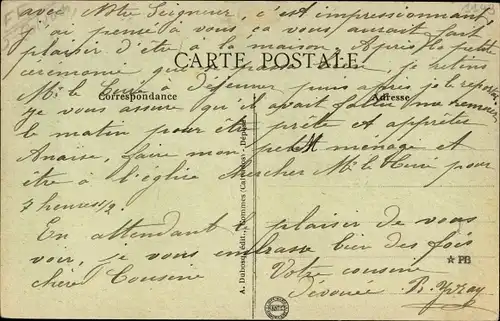 avec Notre Seigneur, c'est impressionnant,
j'ai pensé à vous ça vous aurait fait
plaisir d'être à la maison. Après la petite
cérémonie qui je retins
CARTE POSTALE
Mr le Curé à déjeuner puis après je le
Correspondance
Adresse
je vous assure qu'il avait fallu me remuer
le matin pour être prête et apprêtée
Anaïse, faire mon petit ménage et
être à l'église chercher Mr le Curé pour
7 heures 1/2.
En attendant le plaisir de vous
voir, je vous embrasse bien des fois
chère Cousine
Votre cousine
dévouée
A. Dubosq, édit., (Calvados) - Déposé
★ PB